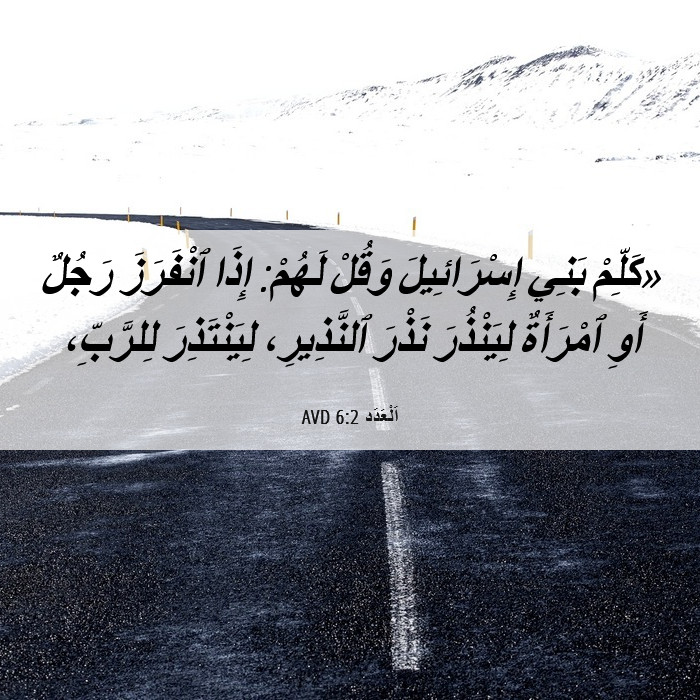 «كَلِّمْ بَنِي إِسْرَائِيلَ وَقُلْ لَهُمْ: إِذَا ٱنْفَرَزَ رَجُلٌ
أَوِ ٱمْرَأَةٌ لِيَنْذُرَ نَذْرَ ٱلنَّذِيرِ، لِيَنْتَذِرَ لِلرَّبِّ،
اَلْعَدَد 6:2 AVD